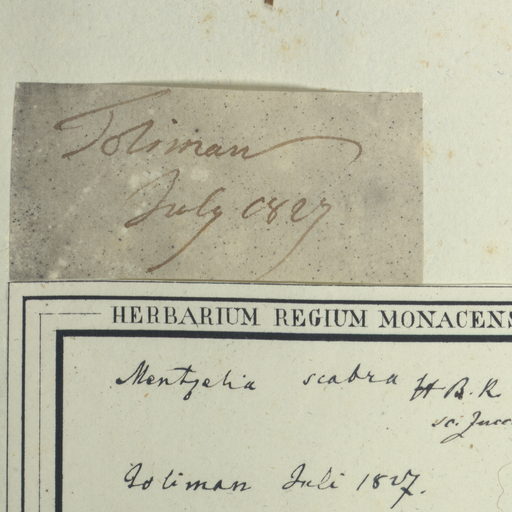 Toliman
July 1827
HERBARIUM REGIUM MONACENS
Mentzelia scabra H B. K
Toliman Juli 1827.